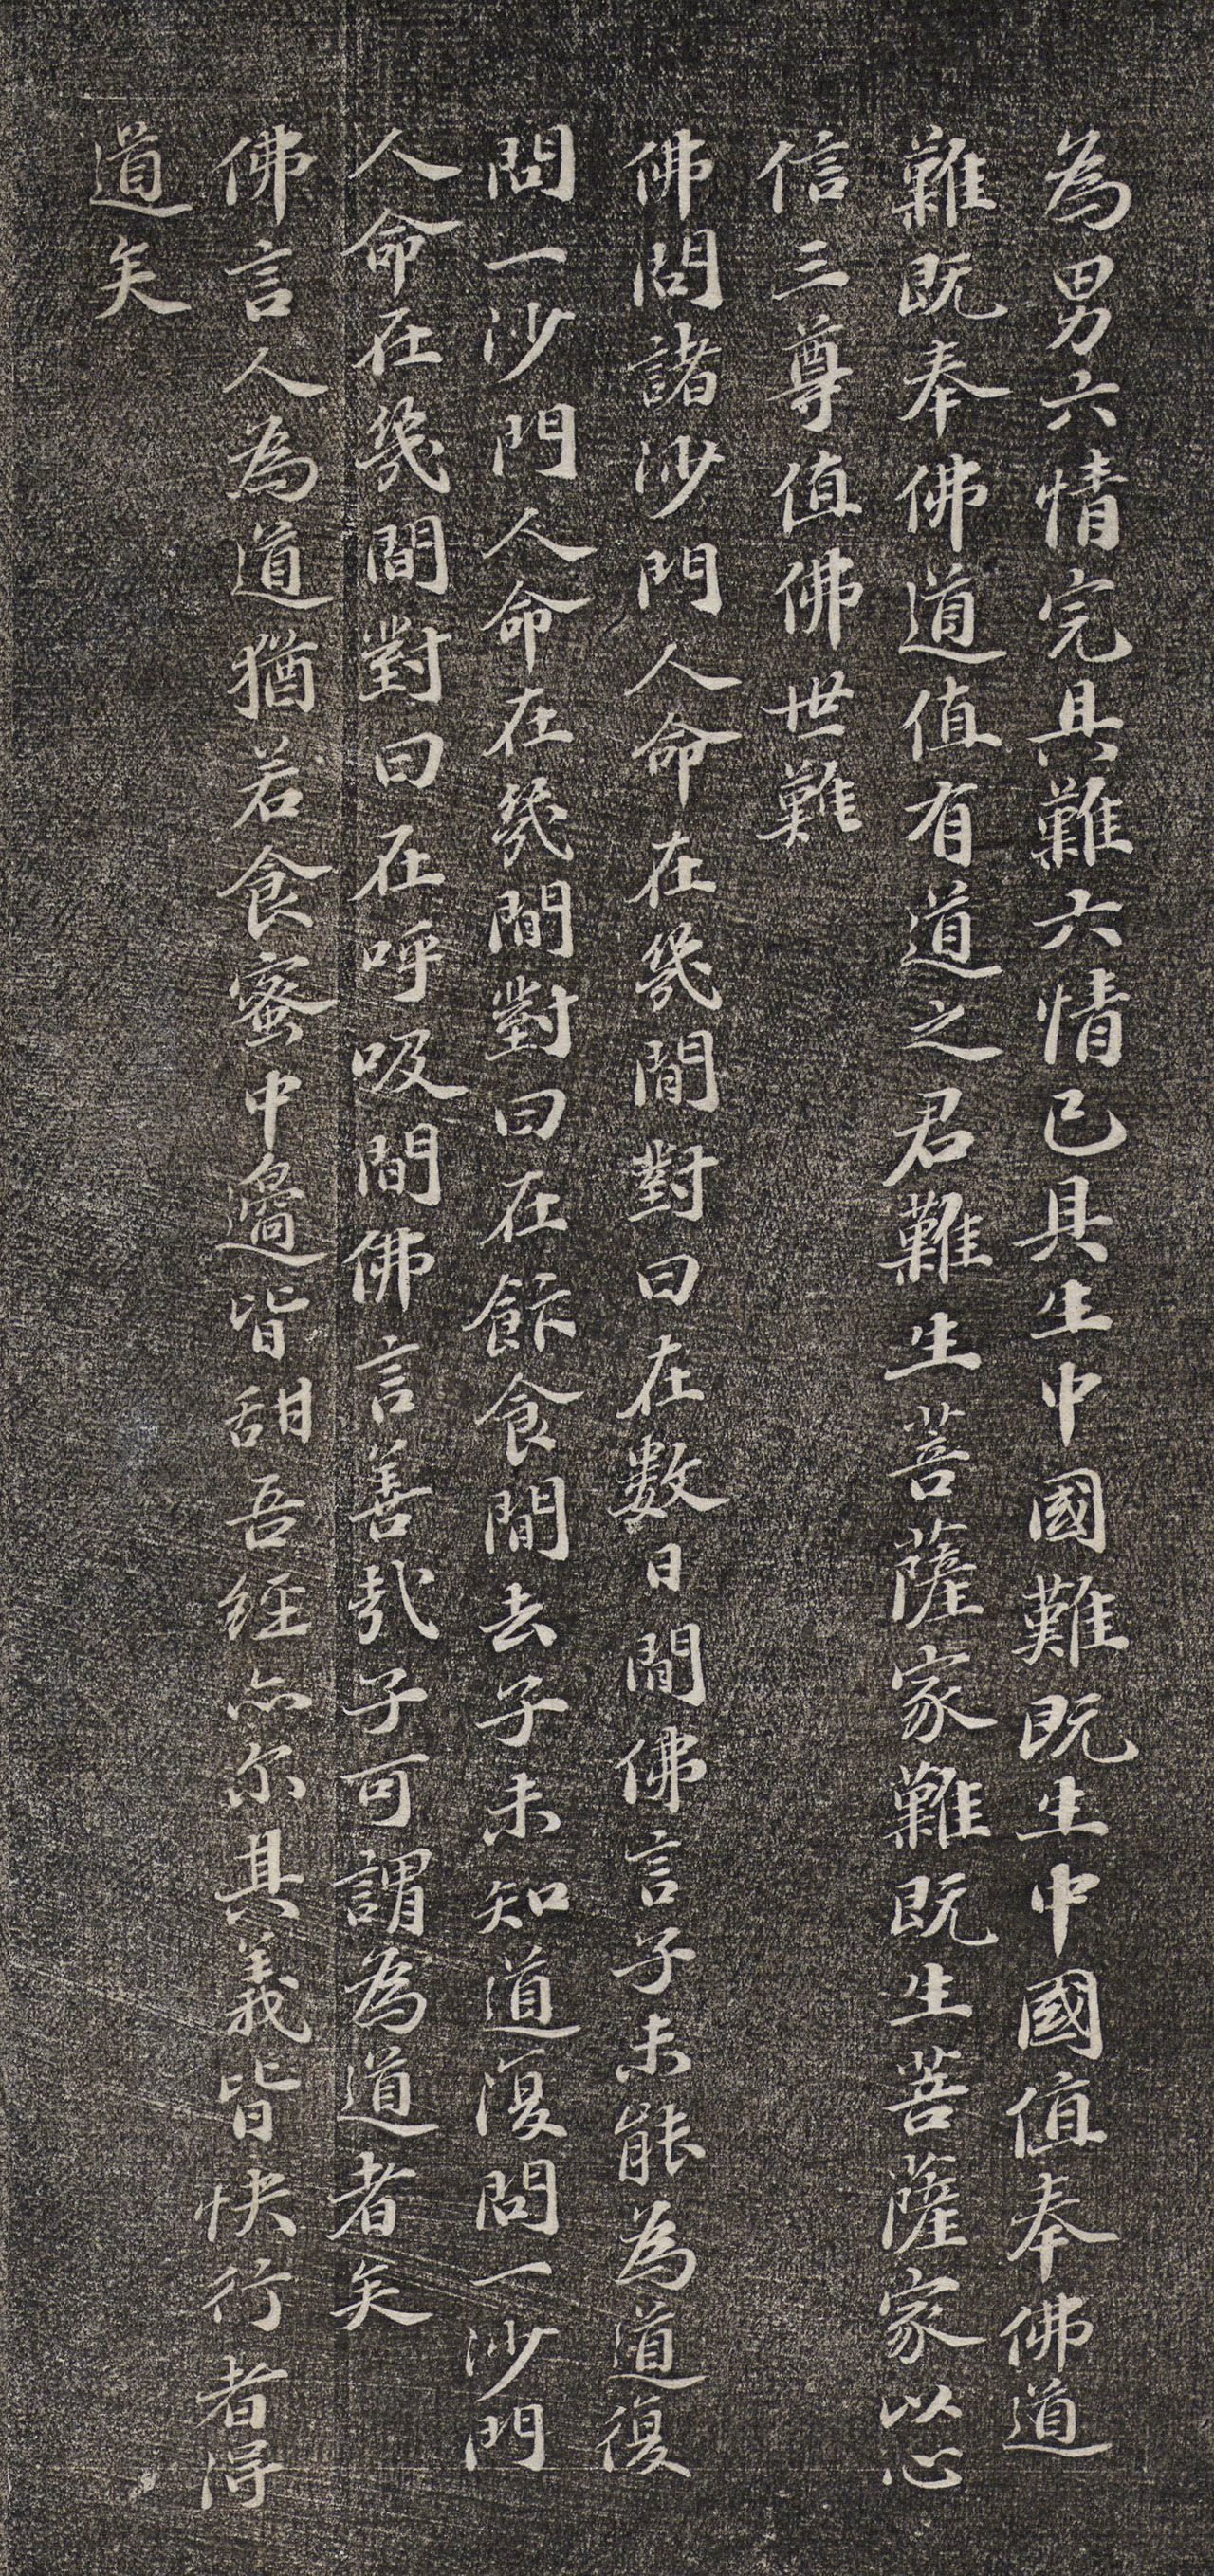 為男六情完具難六情已具生中國難既生中國值奉佛道
難既奉佛道值有道之君難生菩薩家難既生菩薩家以心
信三尊值佛世難
佛問諸沙門人命在幾間對曰在數日間佛言子未能為道復
問一沙門人命在幾間對曰在飯食間去子未知道復問一沙門
人命在幾間對曰在呼吸間佛言善哉子可謂為道者矣
佛言人為道猶若食蜜中邊皆甜吾經亦尔其義皆快行者得
道矣